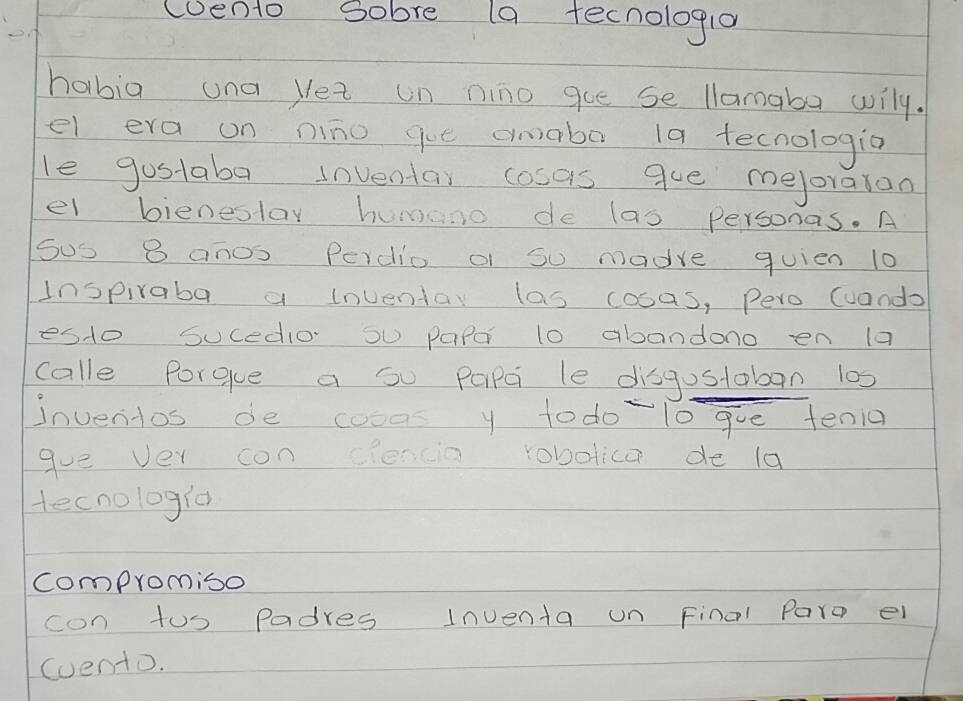 cuento sobre la tecnologia
habia una vez un niño que se llamaba wily.
el era un niño que amaba la tecnologia
le gustaba inventar cosas que mejoraran
el bienestar humano de las personas. A
sus 8 años Perdio a su madre quien lo
inspiraba a inventar las cosas, pero cuando
esto sucedio su papá lo abandono en la
calle Porque a su papá le disgustaban los
inventos de cosas y todo lo que tenia
que ver con ciencia robotica de la
tecnologia
compromiso
con tus Padres inventa un Final Para el
cuento.